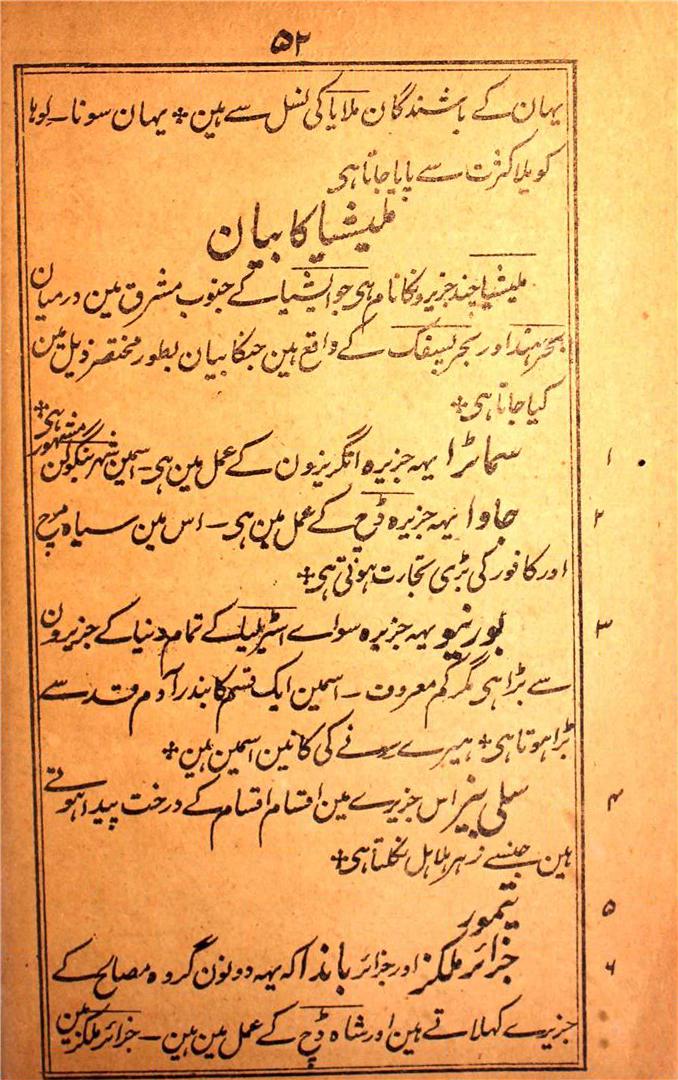 ۵۲
یہان کے باشندگان ملایا کی نسل سے ہین + یہان سونا ۔ لوہا
کویلا کثرت سے پایا جاتا ہی
ملیشیا کا بیان
ملیشیا چند جزیرونکا نام ہی جو ایشیا کے جنوب مشرق مین درمیان
بحر ہند اور بحر پسیفک کے واقع ہین جنکا بیان بطور مختصر ذیل مین
کیا جاتا ہی +
۱ سماٹرا یہہ جزیرہ انگریزون کے عمل مین ہی ۔ اسمین شہر بنکولن مشہور ہی +
۲ جاوا یہہ جزیرہ ڈچ کے عمل مین ہی ۔ اس مین سیاہ مرچ
اور کافور کی بڑی تجارت ہوتی ہی +
۳ بورنیو یہہ جزیرہ سواے اسٹریلیا کے تمام دنیا کے جزیرون
سے بڑا ہی مگر کم معروف ۔ اسمین ایک قسم کا بندر آدم قد سے
بڑا ہوتا ہی + ہیرے سونے کی کانین اسمین ہین +
۴ سلی بیز اس جزیرے مین اقسام اقسام کے درخت پیدا ہوتے
ہین جنسے زہر ہلاہل نکلتا ہی +
۵ تیمور
۶ جزائر ملکز اور جزائر باندا کہ یہہ دونون گروہ مصالح کے
جزیرے کہلاتے ہین اور شاہ ڈچ کے عمل مین ہین ۔ جزائر ملکز مین